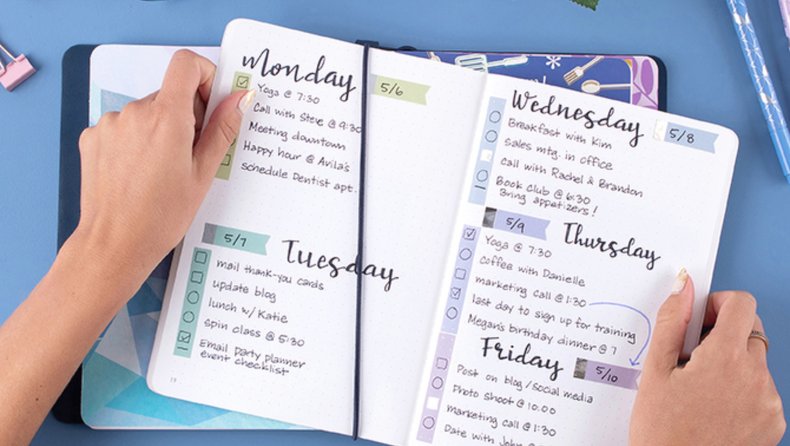 Monday
5/6
Yoga @ 7:30
Call with Steve @ 9:30
Meeting downtown
Happy hour @ Avila's
schedule Dentist apt.
5/7
Tuesday
mail thank-you cards
update blog
lunch w/ Katie
spin class @ 5:30
Email Party planner
event checklist
Wednesday
5/8
Breakfast with Kim
Sales mtg. in office
Call with Rachel & Brandon
Book Club @ 6:30
Bring appetizers!
5/9
Thursday
Yoga @ 7:30
coffee with Danielle
marketing call @ 1:30
last day to sign up for training
Megan's birthday dinner @ 7
Friday
5/10
Post on blog/social media
Photo shoot @ 10:00
marketing call @ 1:30
Date with John @